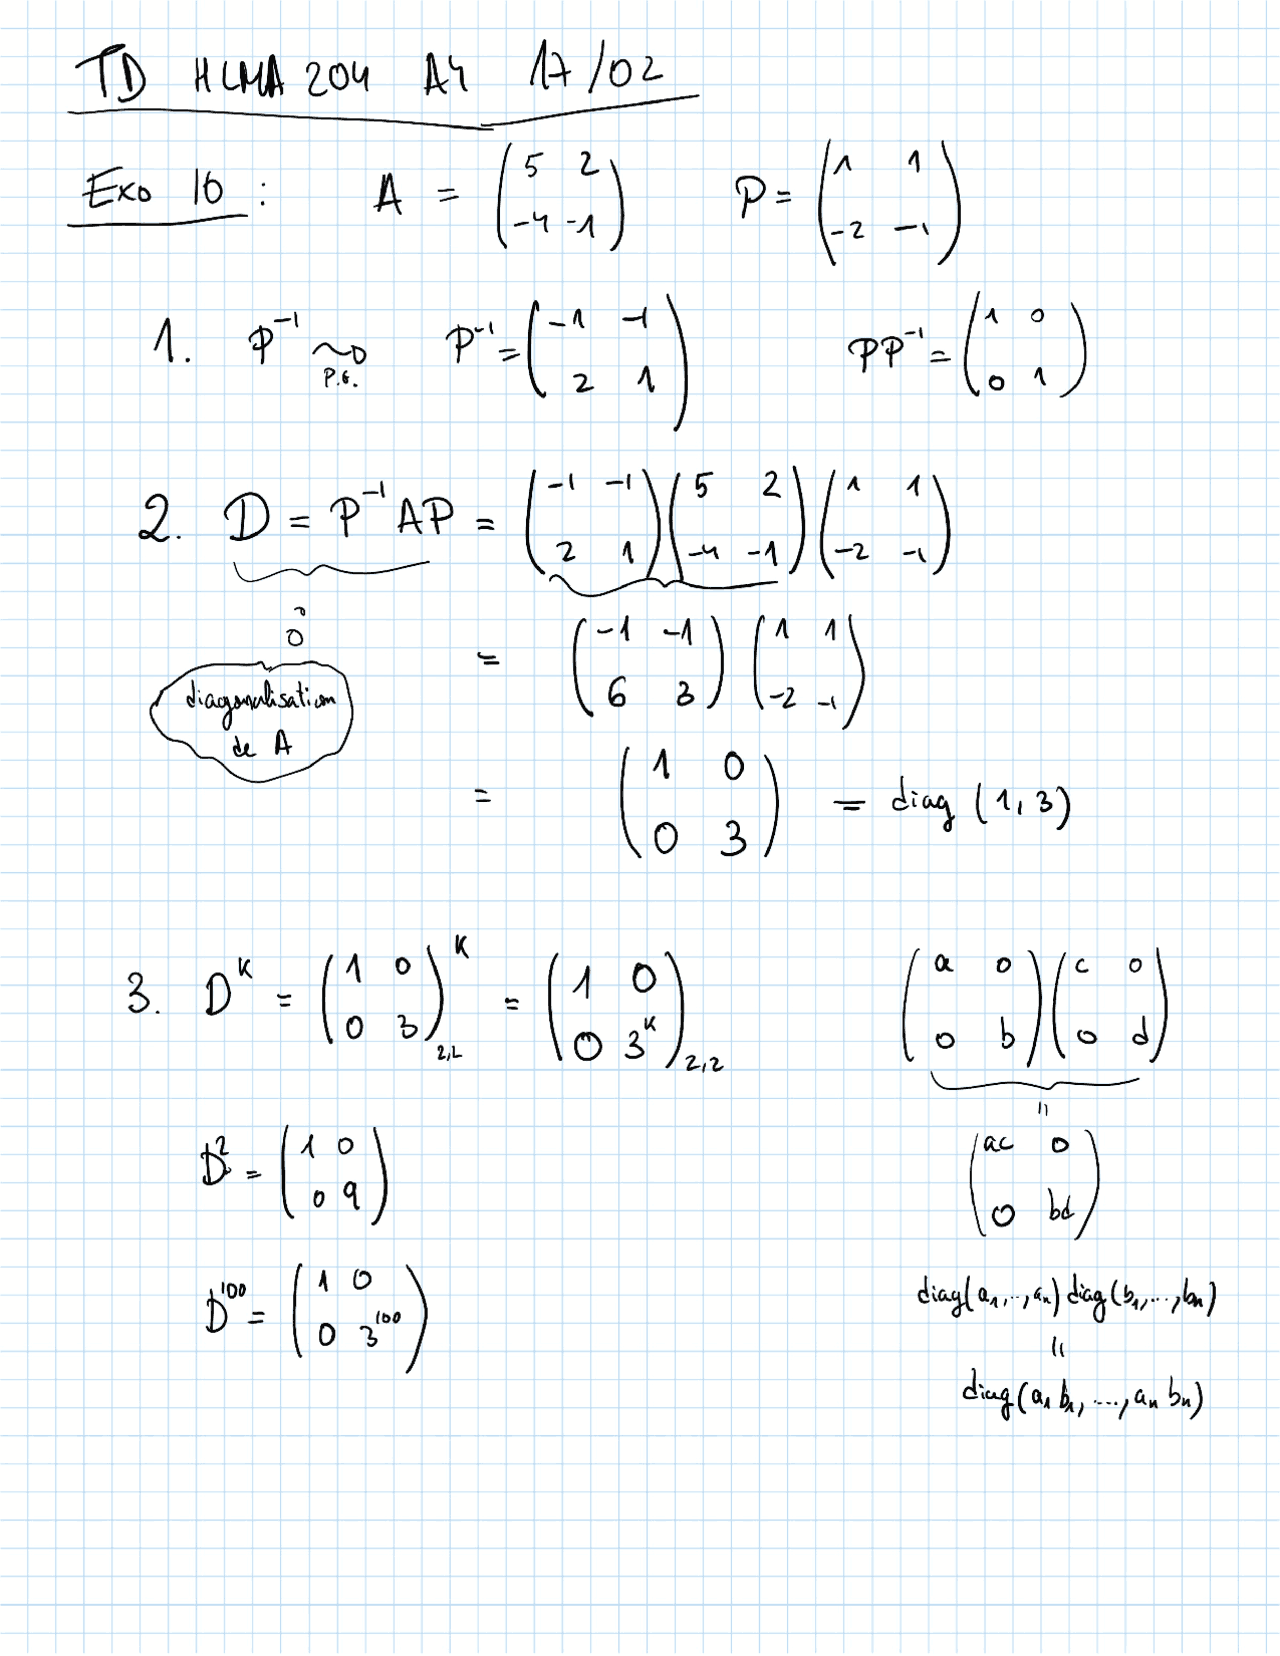 TD HLMA 204 A4 17/02
Exo 10 : A = \begin{pmatrix} 5 & 2 \\ -4 & -1 \end{pmatrix} P = \begin{pmatrix} 1 & 1 \\ -2 & -1 \end{pmatrix}
1. P^{-1} \underset{P.G.}{\leadsto} P^{-1} = \begin{pmatrix} -1 & -1 \\ 2 & 1 \end{pmatrix} PP^{-1} = \begin{pmatrix} 1 & 0 \\ 0 & 1 \end{pmatrix}
2. D = P^{-1}AP = \begin{pmatrix} -1 & -1 \\ 2 & 1 \end{pmatrix} \begin{pmatrix} 5 & 2 \\ -4 & -1 \end{pmatrix} \begin{pmatrix} 1 & 1 \\ -2 & -1 \end{pmatrix}
= \begin{pmatrix} -1 & -1 \\ 6 & 3 \end{pmatrix} \begin{pmatrix} 1 & 1 \\ -2 & -1 \end{pmatrix}
diagonalisation
de A
= \begin{pmatrix} 1 & 0 \\ 0 & 3 \end{pmatrix} = diag (1, 3)
3. D^K = \begin{pmatrix} 1 & 0 \\ 0 & 3 \end{pmatrix}_{2,2}^K = \begin{pmatrix} 1 & 0 \\ 0 & 3^K \end{pmatrix}_{2,2}
D^2 = \begin{pmatrix} 1 & 0 \\ 0 & 9 \end{pmatrix}
D^{100} = \begin{pmatrix} 1 & 0 \\ 0 & 3^{100} \end{pmatrix}
\begin{pmatrix} a & 0 \\ 0 & b \end{pmatrix} \begin{pmatrix} c & 0 \\ 0 & d \end{pmatrix}
=
\begin{pmatrix} ac & 0 \\ 0 & bd \end{pmatrix}
diag(a_1,..,a_n) diag(b_1,...,b_n)
=
diag(a_1 b_1, ..., a_n b_n)